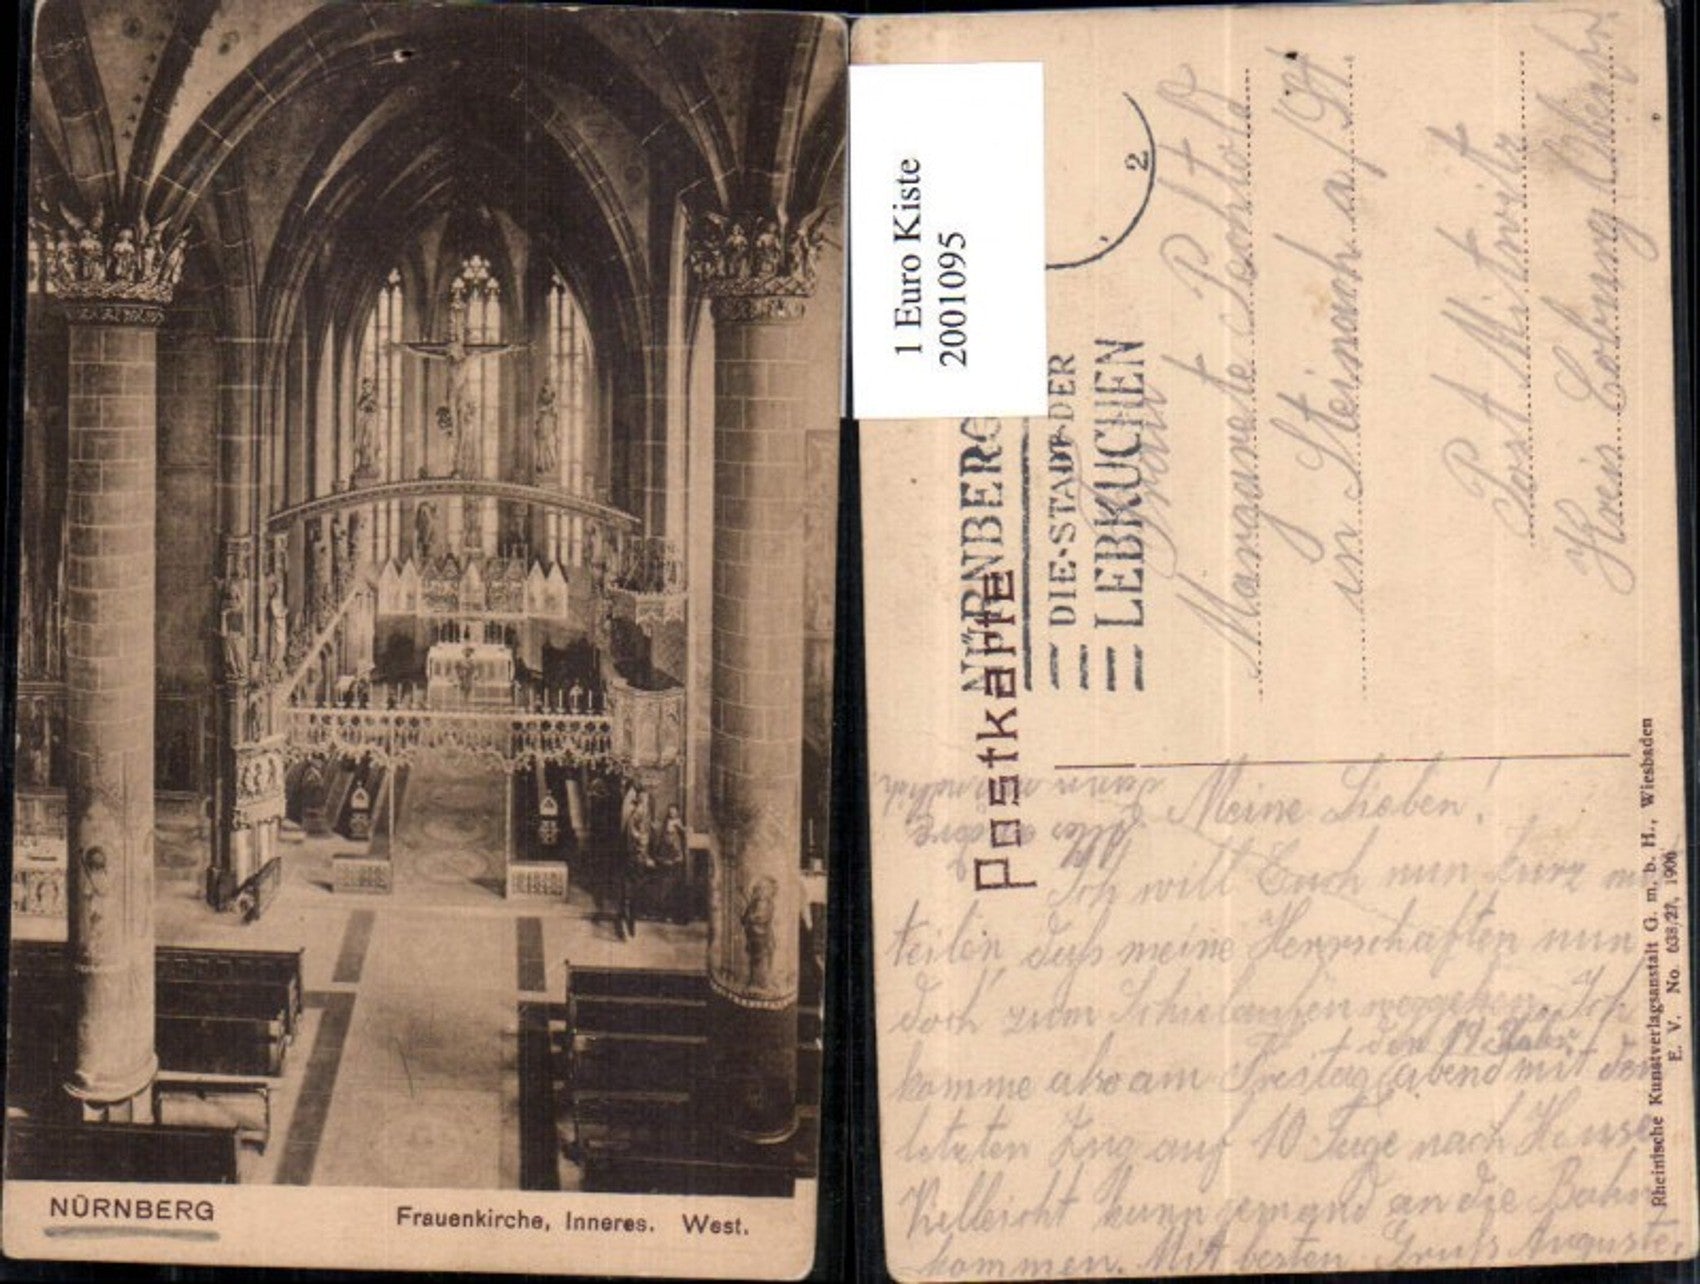 NÜRNBERG
Frauenkirche, Inneres. West.
1 Euro Kiste
20010095
2
NÜRNBERG
DIE·STADT·DER
LEBKUCHEN
Postkarte
Margarete
in Steinach a/
Post Mitwitz
Kreis Coburg
Meine Lieben!
Ich will Euch nun kurz
teilen daß meine Herrschaften nun
doch zum weggehen. Ich
den 14
komme also am Freitag abend mit dem
letzten Zug auf 10 Tage nach Hause
Vielleicht kann jemand an die Bahn
kommen. Mit besten Gruß Auguste
Alles andere
dann mündlich
Rheinische Kunstverlagsanstalt G. m. b. H., Wiesbaden
E. V. No. 1906